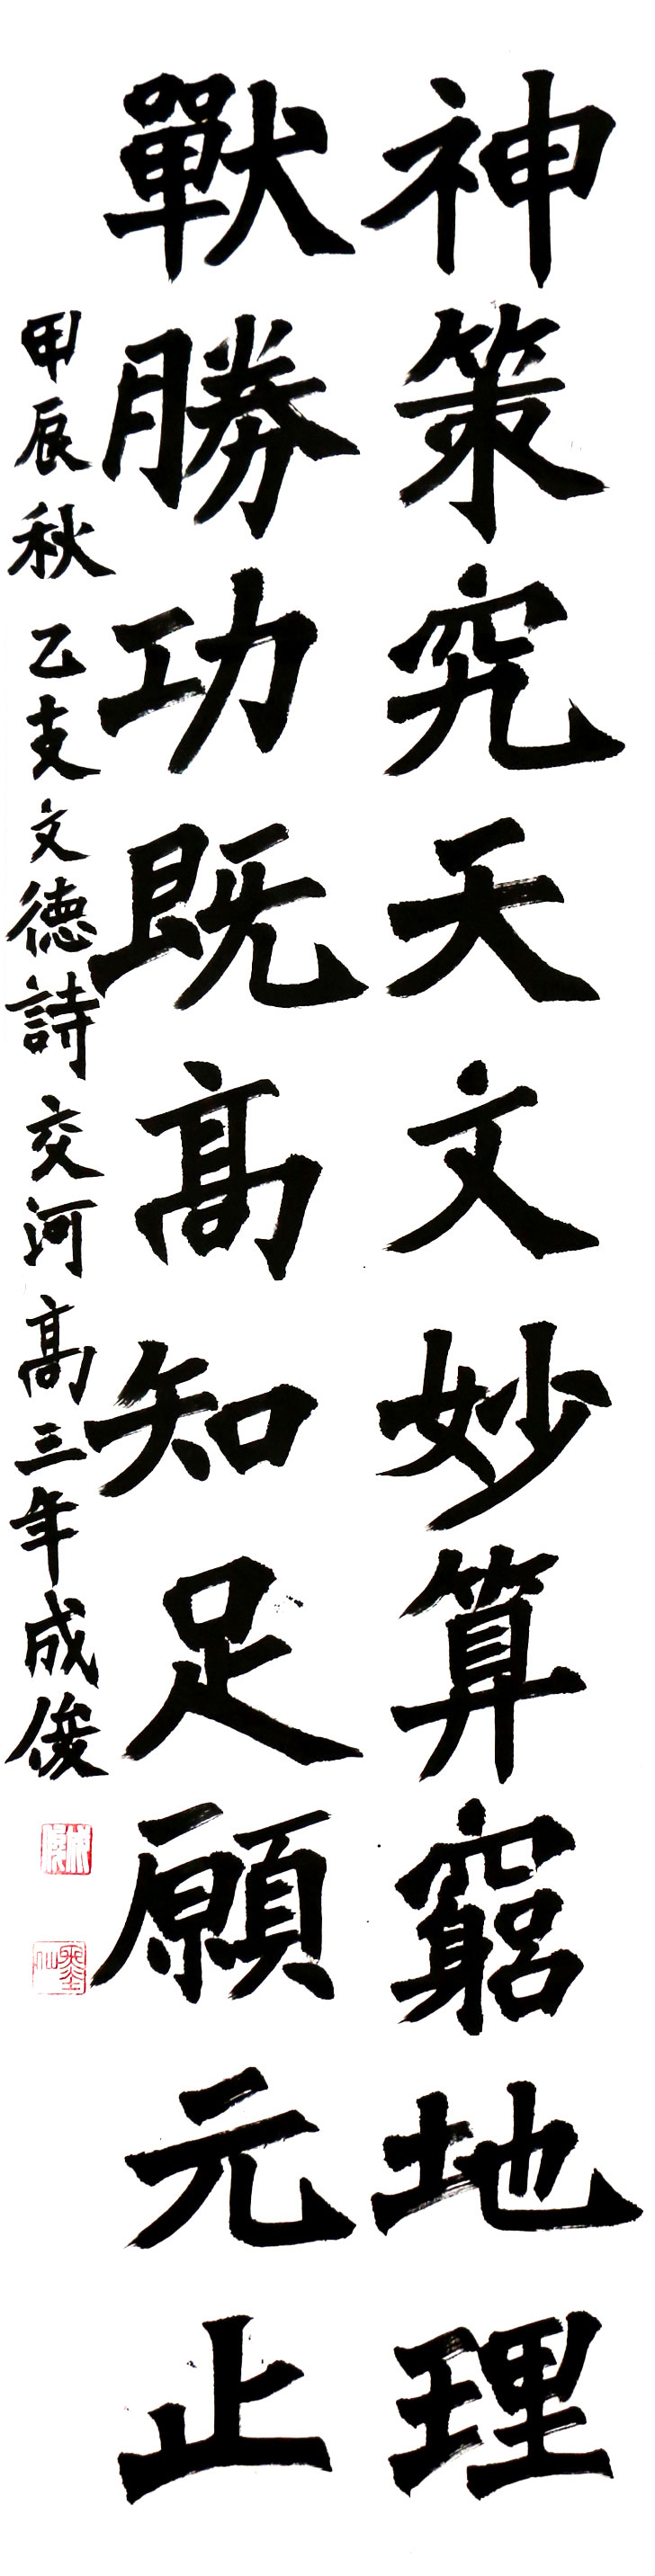 神策究天文妙算竆地理
戰勝功既髙知足願元止
甲辰秋 乙支文德詩 交河髙三年成俊